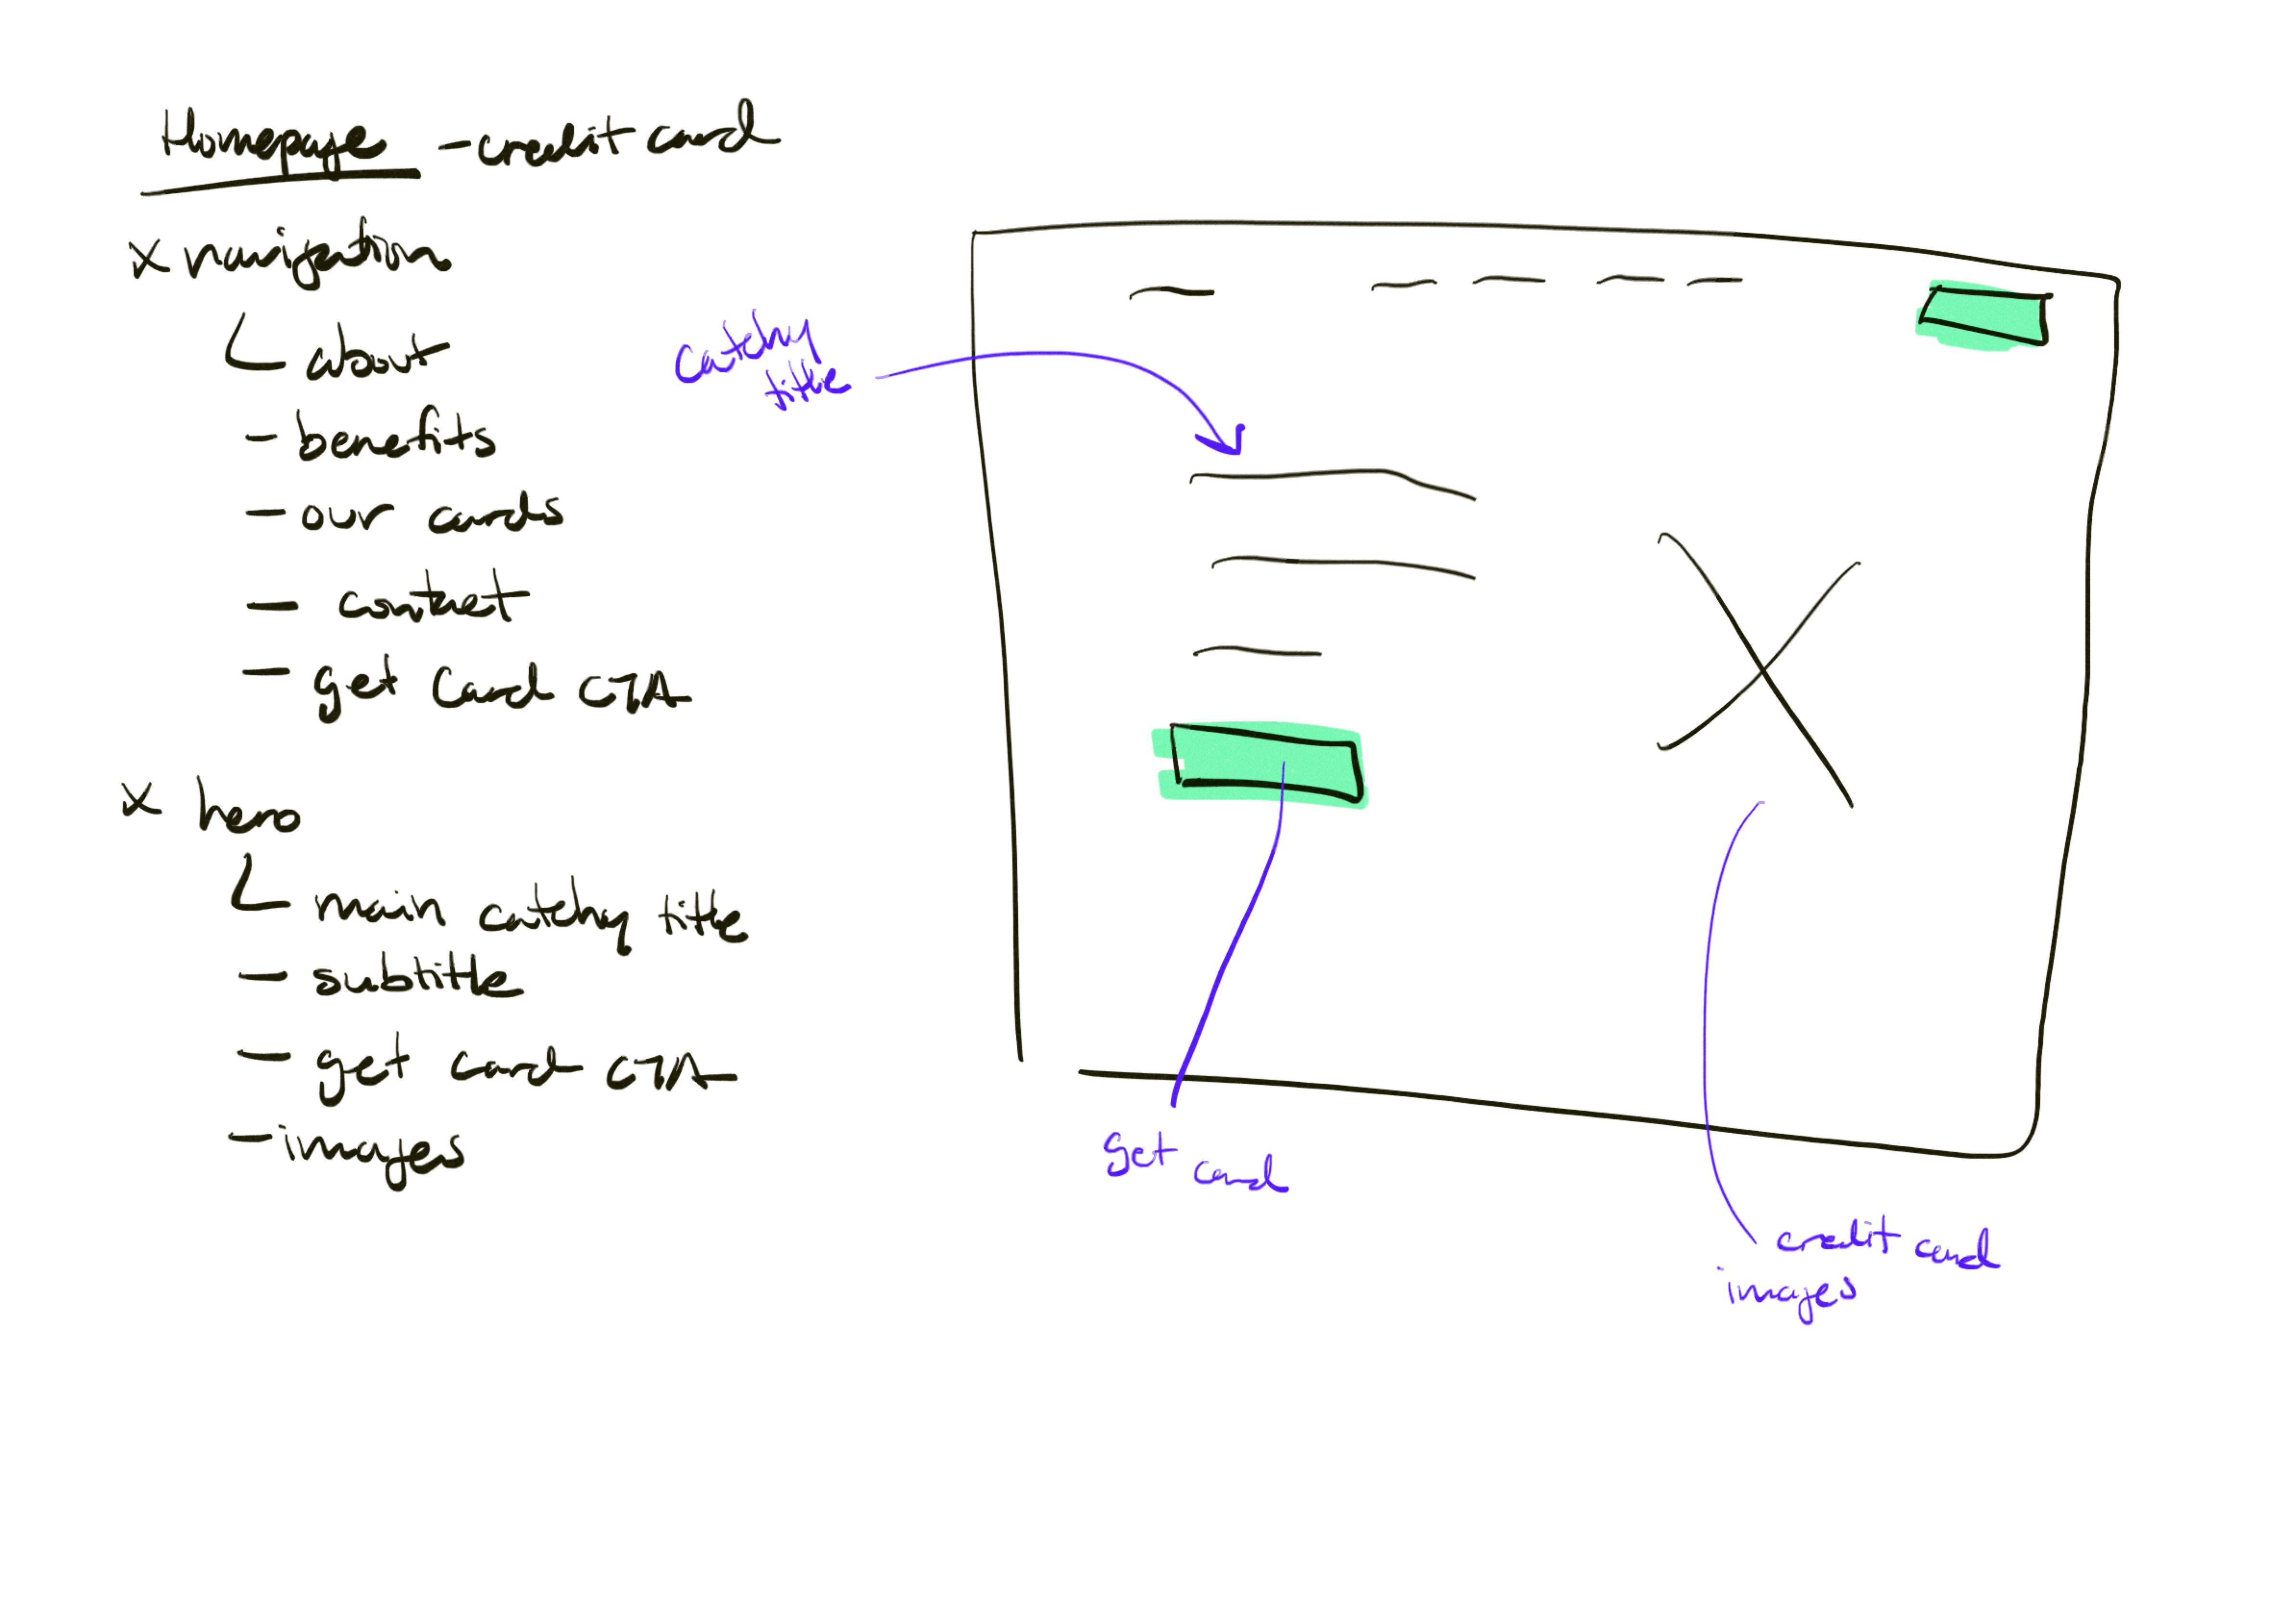 Homepage - credit card
x navigation
about
- benefits
- our cards
- contact
- get card CTA
x hero
main catchy title
- subtitle
- get card CTA
- images
catchy
title
get card
credit card
images